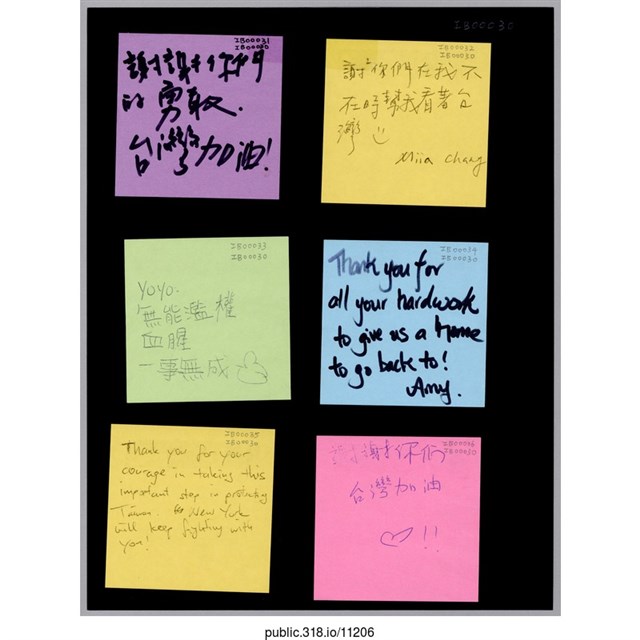 IB00030
IB00031
IB00030
謝謝你們
的勇敢.
台灣加油!
IB00032
IB00030
謝謝你們在我不
在時幫我看著台
灣
Miia Chang
IB00033
IB00030
YoYo.
無能濫權
血腥
一事無成
IB00034
IB00030
Thank you for
all your hardwork
to give us a Home
to go back to!
Amy.
IB00035
IB00030
Thank you for your
courage in taking this
important step in protecting
Taiwan. New York
will keep fighting with
you!
IB00036
IB00030
謝謝你们
台灣加油
!!
public.318.io/11206